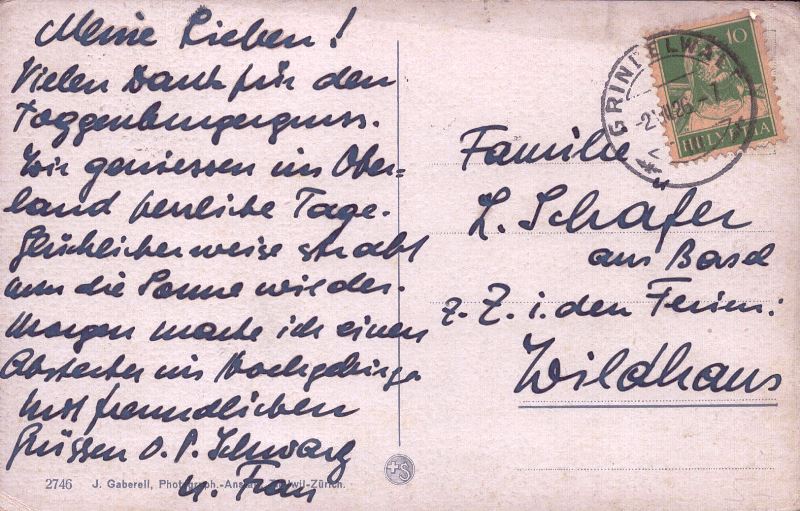 Meine Lieben!
Vielen Dank für den
Toggenburgergruss.
Wir geniessen im Ober=
land herrliche Tage.
Glücklicherweise strahlt
nun die Sonne wieder.
Morgen mache ich einen
Abstecher ins Hochgebirge
Mit freundlichen
Grüssen O. P. Schwarz
u. Frau
2746 J. Gaberell, Photograph.-Anstalt, Thalwil-Zürich.
+S
GRINDELWALD
10
HELVETIA
Familie
Schäfer
aus Basel
z. Z. i. den Ferien:
Wildhaus